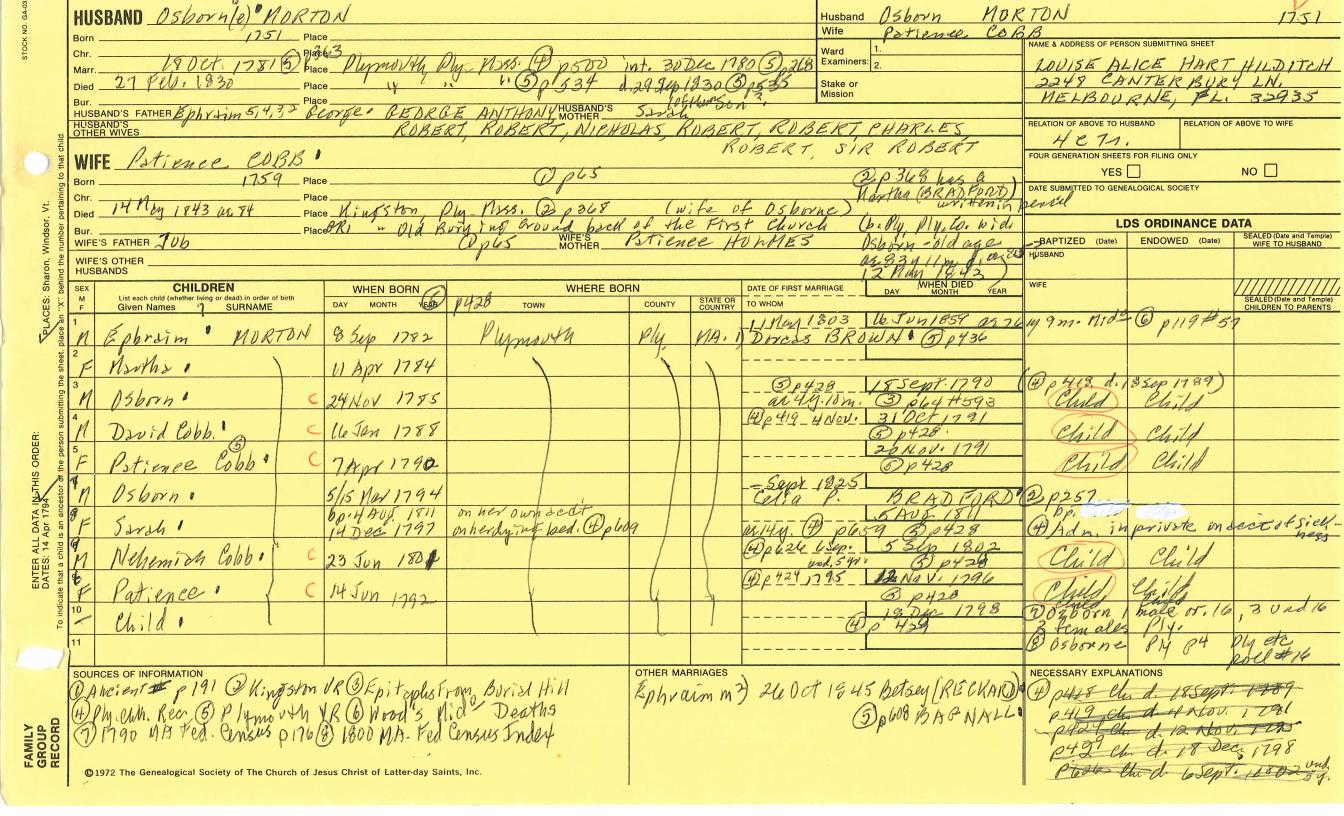 STOCK NO. GA-03
PLACES: Sharon, Windsor, Vt.
ENTER ALL DATA IN THIS ORDER:
DATES: 14 Apr 1794
To indicate that a child is an ancestor of the person submitting the sheet, place an "X" behind the number pertaining to that child
FAMILY GROUP RECORD
HUSBAND Osborn(e) MORTON
Born 1751 Place
Chr. Place
Marr. 18 Oct. 1781 ⑤ p263 Place Plymouth, Ply. Mass. ④ p500 int. 30 Dec 1780 ⑤ p268
Died 27 Feb. 1830 " " " ⑤ p534 d. 29 Sep 1830 ⑤ p535
Bur. Place
HUSBAND'S FATHER Ephraim 5,4,3,2 George GEORGE ANTHONY HUSBAND'S MOTHER Sarah
HUSBAND'S OTHER WIVES ROBERT, ROBERT, NICHOLAS, ROBERT, ROBERT, CHARLES,
ROBERT, SIR ROBERT
WIFE Patience COBB
Born 1759 Place ① p65 ② p368 has a
Chr. Place Martha (BRADFORD) written in pencil
Died 14 May 1843 ae 84 Place Kingston, Ply. Mass. ② p368 (wife of Osborne) (b. Ply, Ply. Co. wid.
Bur. Place " Old Burying Ground back of the First Church
WIFE'S FATHER Job ① p65 WIFE'S MOTHER Patience HOLMES Osborn - old age
WIFE'S OTHER HUSBANDS ae 83y 11m.
12 May 1843)
Husband Osborn MORTON 1751
Wife Patience COBB
Ward Examiners: 1. 2.
Stake or Mission
NAME & ADDRESS OF PERSON SUBMITTING SHEET
LOUISE ALICE HART HILDITCH
2248 CANTERBURY LN.
MELBOURNE, FL. 32935
RELATION OF ABOVE TO HUSBAND RELATION OF ABOVE TO WIFE
4c7r.
FOUR GENERATION SHEETS FOR FILING ONLY
YES NO
DATE SUBMITTED TO GENEALOGICAL SOCIETY
LDS ORDINANCE DATA
BAPTIZED (Date) ENDOWED (Date) SEALED (Date and Temple) WIFE TO HUSBAND
HUSBAND
WIFE
SEALED (Date and Temple) CHILDREN TO PARENTS
SEX M F CHILDREN WHEN BORN WHERE BORN DATE OF FIRST MARRIAGE WHEN DIED
List each child (whether living or dead) in order of birth
Given Names SURNAME DAY MONTH YEAR ⑤ p428 TOWN COUNTY STATE OR COUNTRY TO WHOM DAY MONTH YEAR
1 M Ephraim MORTON 8 Sep 1782 Plymouth Ply. MA. 1) 11 May 1803 Dorcas BROWN 16 Jun 1859 ae 76y 9m. Mid° ⑥ p119 #57 ⑤ p436
2 F Martha 11 Apr 1784
3 M Osborn C 24 Nov 1785 ⑤ p428 ae 4y. 10m. 18 Sept. 1790 ③ p64 #593 (④ p418 d. 18 Sep 1789) Child Child
4 M David Cobb C 16 Jan 1788 ④ p419 4 Nov. 31 Oct 1791 ⑤ p428 Child Child
5 F Patience Cobb ⑤ C 7 Apr 1790 20 Nov. 1791 ⑤ p428 Child Child
M Osborn 5/15 Mar 1794 - Sept 1825 Celia P. BRADFORD ② p257
F Sarah bp. 4 Aug 1811 14 Dec 1797 on her own acct on her dying bed. ④ p609 ae 14y. ④ p659 5 AUG 1811 ⑤ p428 bp.
④ Adm. in private on acct of sickness
M Nehemiah Cobb C 23 Jun 1801 ④ p626 6 Sep. und. 5 yr. 5 Sep 1802 ⑤ p428 Child Child
F Patience C 14 Jun 1792 ④ p424 1795 12 Nov. 1796 ⑤ p428 Child Child
10 - Child 18 Dec 1798 ④ p 429
⑦ Osborn 1 male or. 16, 3 und 16
3 females Ply.
11 ⑧ Osborne Ply p4 Ply etc roll #16
SOURCES OF INFORMATION
① Ancient p191 ② Kingston VR ③ Epitaphs From Burial Hill
④ Ply. Chh. Rec. ⑤ Plymouth VR ⑥ Wood's Mid° Deaths
⑦ 1790 MA Fed. Census p176 ⑧ 1800 MA. Fed Census Index
©1972 The Genealogical Society of The Church of Jesus Christ of Latter-day Saints, Inc.
OTHER MARRIAGES
Ephraim m2) 26 Oct 1845 Betsey (RECKARD)
⑤ p608 BAGNALL
NECESSARY EXPLANATIONS
④ p418 Ch. d. 18 Sept. 1789
p419 ch d 4 Nov. 1791
p424 ch d. 12 Nov. 1795
p429 ch d. 18 Dec. 1798
p626 Ch d. 6 Sept. 1802 und 5 y.